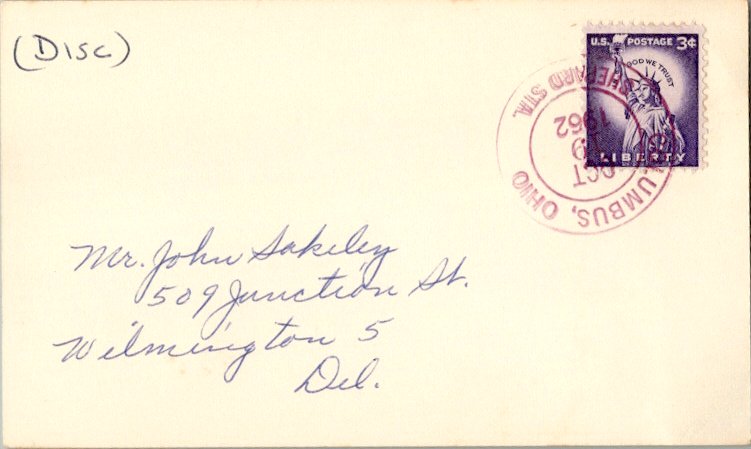 (DISC)
U.S. POSTAGE 3¢
GOD WE TRUST
LIBERTY
SHEPARD STA.
OCT
19
1962
UMBUS, OHIO
Mr. John Sakeley
509 Junction St.
Wilmington 5
Del.